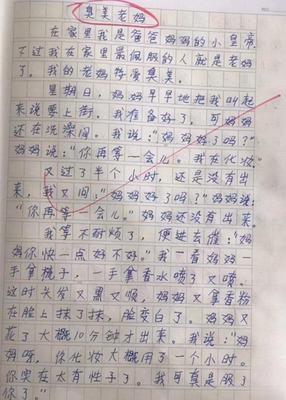 臭美老妈
在家里我是爸爸妈妈的小皇帝
不过我在家里最佩服的人就是老妈
了。我的老妈特别臭美。
星期日,妈妈早早地把我叫起
来说要上街。我准备好了,可妈妈
还在洗澡间。我说:“妈妈好了吗?”
妈妈说:“你再等一会儿。我在化妆”
又过了半个小时,还是没有出
来,我又问:“妈妈好了吗?”妈妈说:
“你再等一会儿。”妈妈还没有出来。
我等不耐烦了,便进去催:“妈
妈你快一点好不好。”我一看妈妈一
手拿梳子,一手拿香水喷了又喷。
这时头发又黑又顺,妈妈又拿香粉
在脸上抹了抹,脸变白了。妈妈又
花了大概10分钟才出来。我说:“妈
妈呀,你化妆大概用了一个小时。
你实在太有性子了。我可真是服了
你了。”